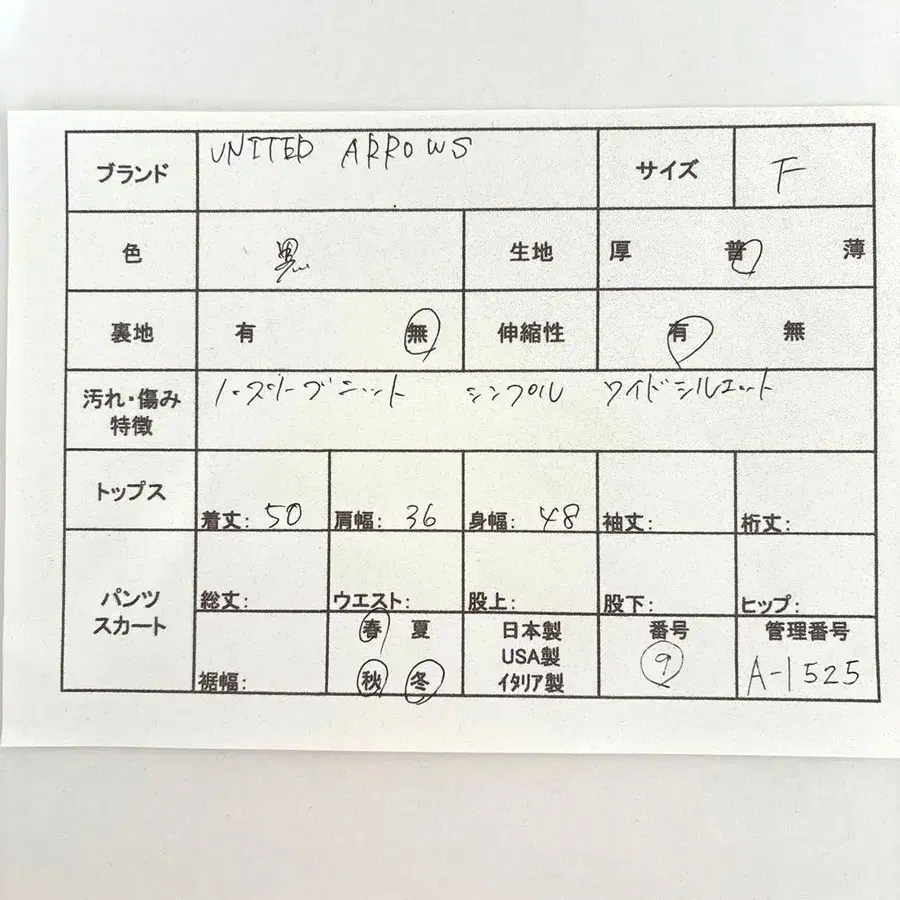 ブランド UNITED ARROWS サイズ F
色 黒 生地 厚 普 薄
裏地 有 無 伸縮性 有 無
汚れ・傷み ノースリーブニット シンプル ワイドシルエット
特徴
トップス 着丈: 50 肩幅: 36 身幅: 48 袖丈: 裄丈:
パンツ 総丈: ウエスト: 股上: 股下: ヒップ:
スカート 春 夏 日本製 番号 管理番号
USA製
裾幅: 秋 冬 イタリア製 9 A-1525